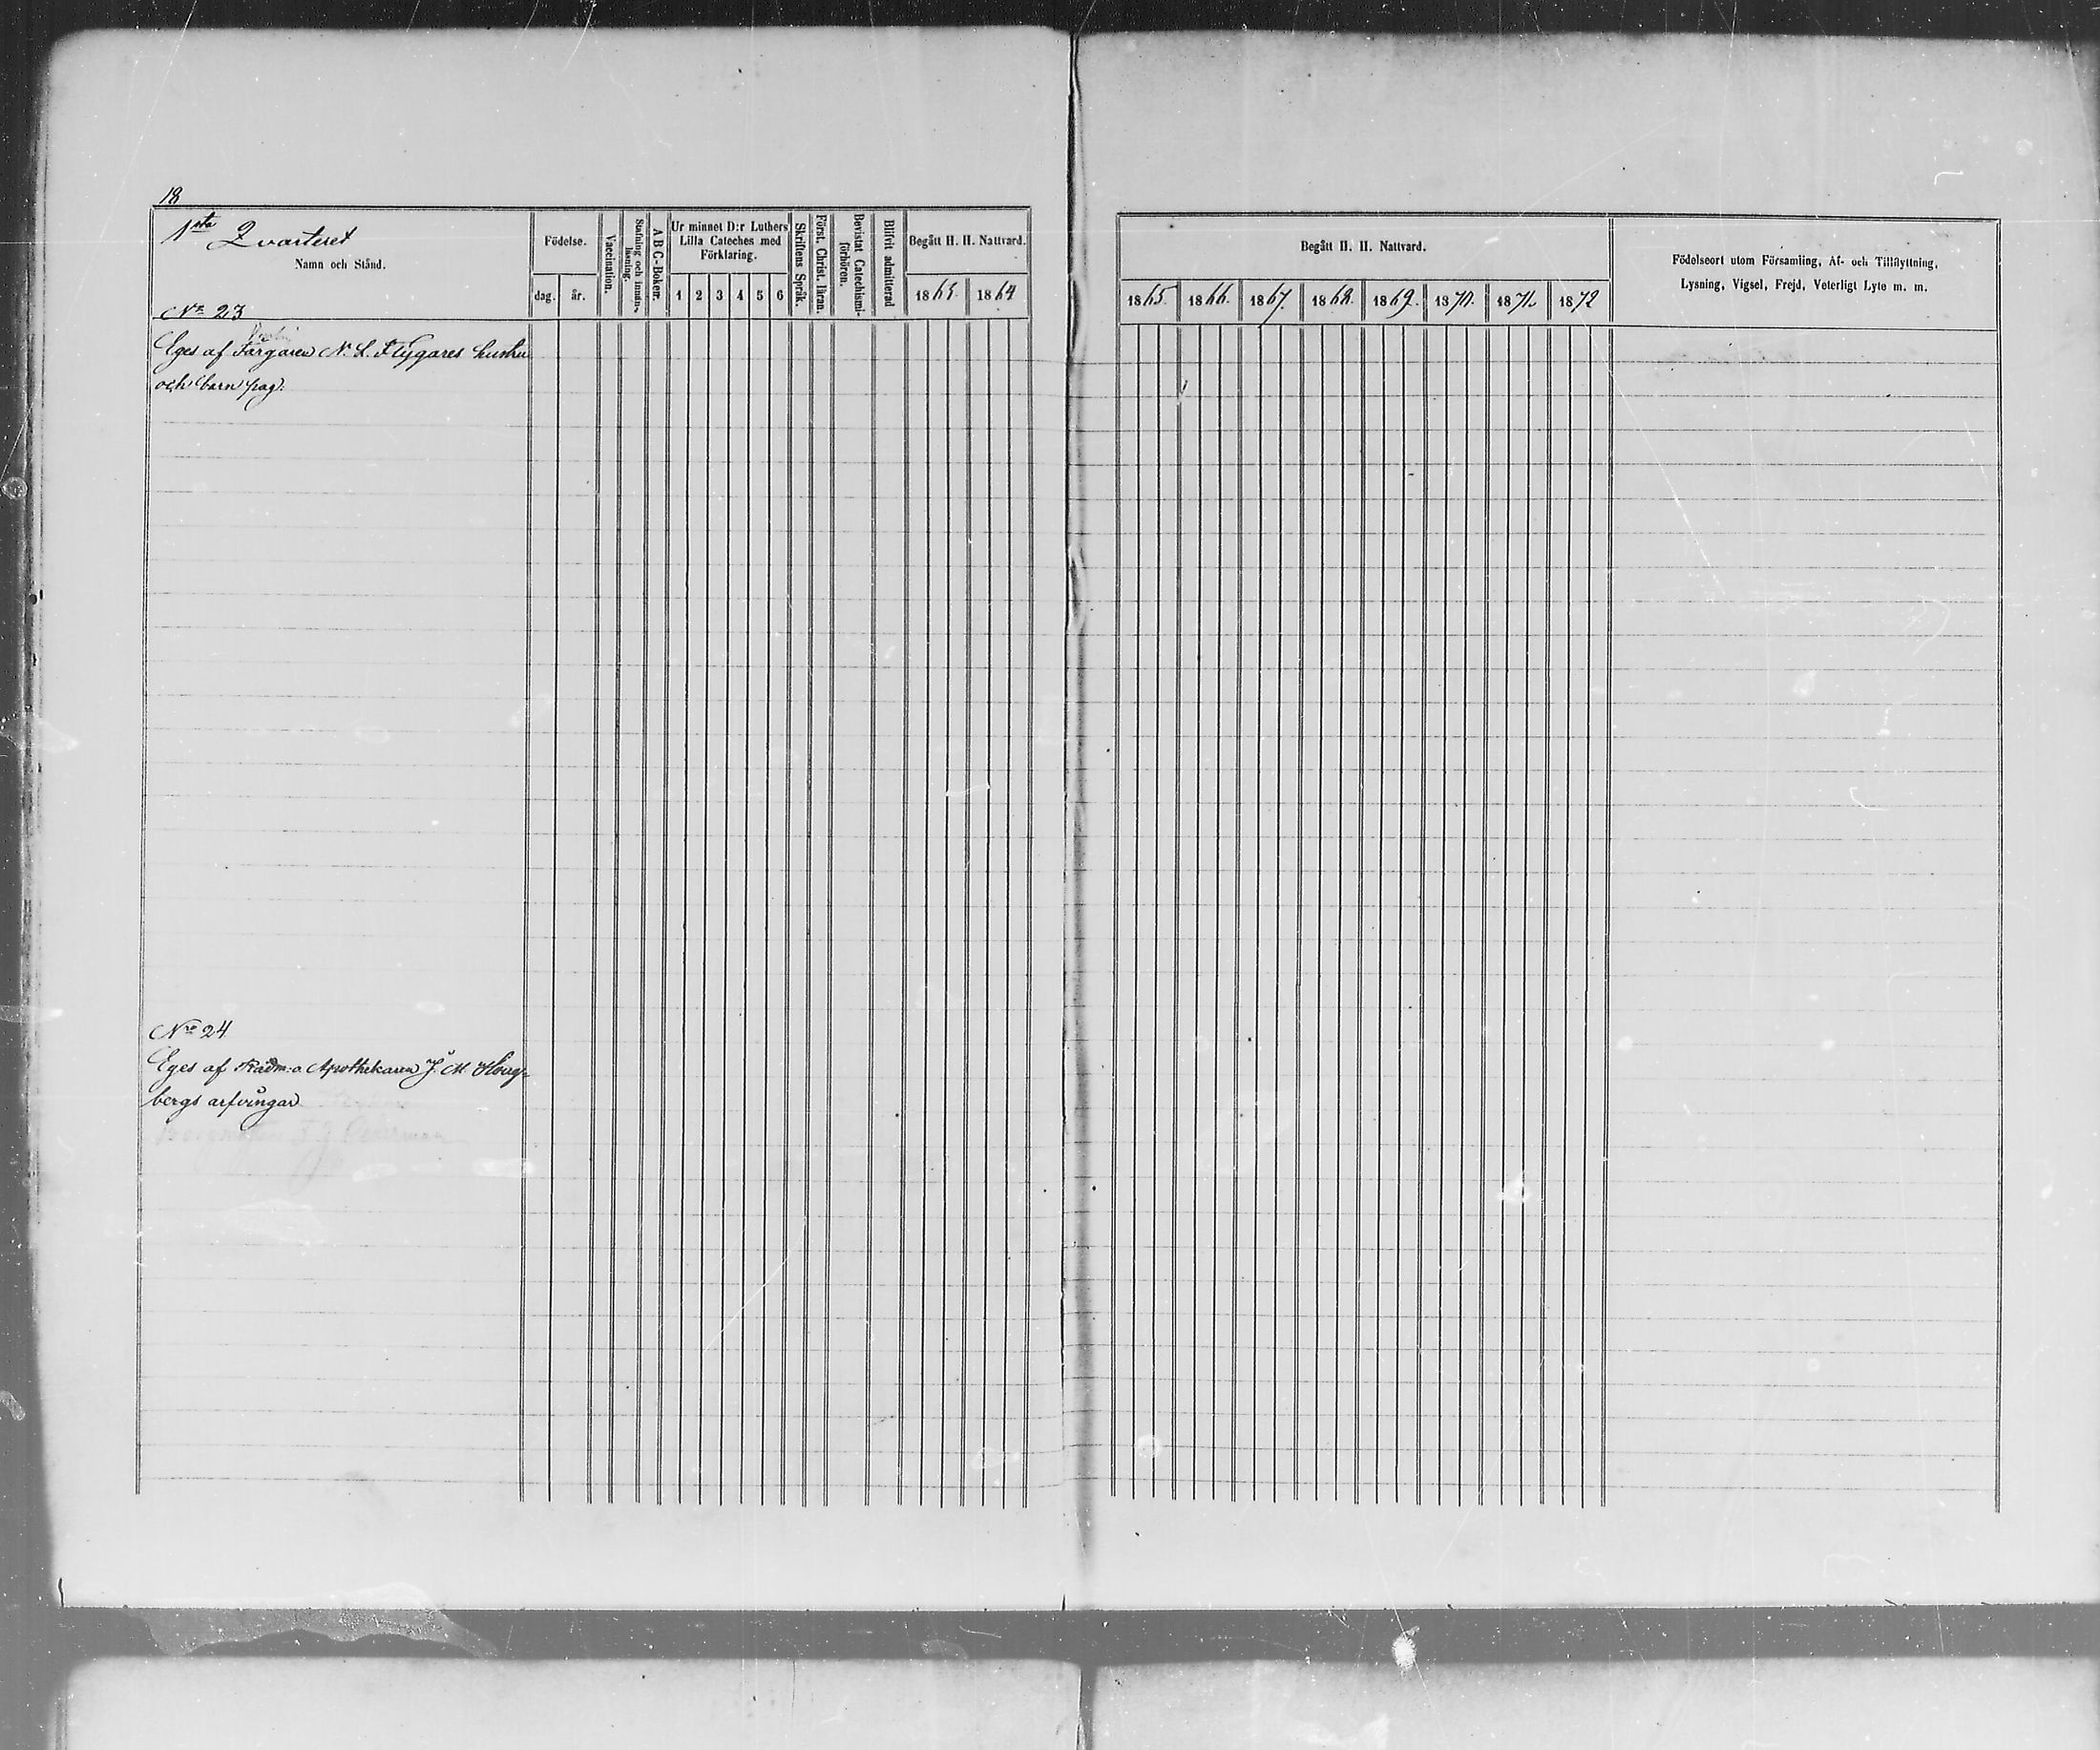 18
1sta Qvarteret
Namn och Stånd.
Födelse.
dag.
år.
Vaccination.
Stafning och innan-läsning.
A B C-Boken.
Ur minnet D:r Luthers
Lilla Cateches med
Förklaring.
1 2 3 4 5 6
Skriftens Språk.
Först. Christ. läran.
Bevistat Catechismi-förhören.
Blifvit admitterad
Begått H. H. Nattvard.
1863. 1864
Begått H. H. Nattvard.
1865. 1866. 1867. 1868. 1869. 1870. 1871. 1872
Födelseort utom Församling, Af- och Tillflyttning,
Lysning, Vigsel, Frejd, Veterligt Lyte m. m.
No 23
Eges af Färgaren N. L. Flygares hustru
och barn pag.
No 24
Eges af Rådm: o Apothekaren J. M.
bergs arfvingar